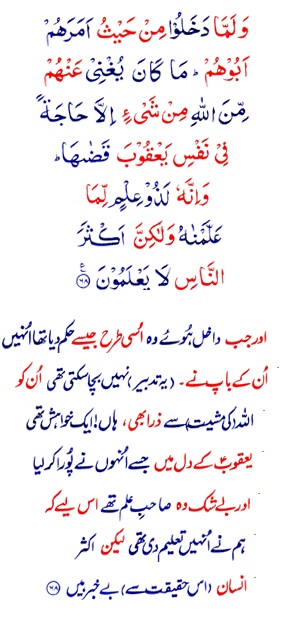 وَلَمَّا دَخَلُوْا مِنْ حَيْثُ اَمَرَهُمْ
اَبُوْهُمْ ؕ مَا كَانَ يُغْنِىْ عَنْهُمْ
مِّنَ اللّٰهِ مِنْ شَىْءٍ اِلَّا حَاجَةً
فِىْ نَفْسِ يَعْقُوْبَ قَضٰٮهَا ؕ
وَاِنَّهٗ لَذُوْ عِلْمٍ لِّمَا
عَلَّمْنٰهُ وَلٰكِنَّ اَكْثَرَ
النَّاسِ لَا يَعْلَمُوْنَ ﴿۶۸﴾ ع
اور جب داخل ہُوئے وہ اُسی طرح جیسے حکم دیا تھا اُنہیں
اُن کے باپ نے۔ (یہ تدبیر) نہیں بچا سکتی تھی اُن کو
اللہ (کی مشیت) سے ذرا بھی، ہاں! ایک خواہش تھی
یعقوبؑ کے دل میں جسے اُنہوں نے پُورا کر لیا
اور بے شک وہ صاحبِ علم تھے اس لیے کہ
ہم نے اُنہیں تعلیم دی تھی لیکن اکثر
انسان (اس حقیقت سے) بے خبر ہیں ﴿۶۸﴾